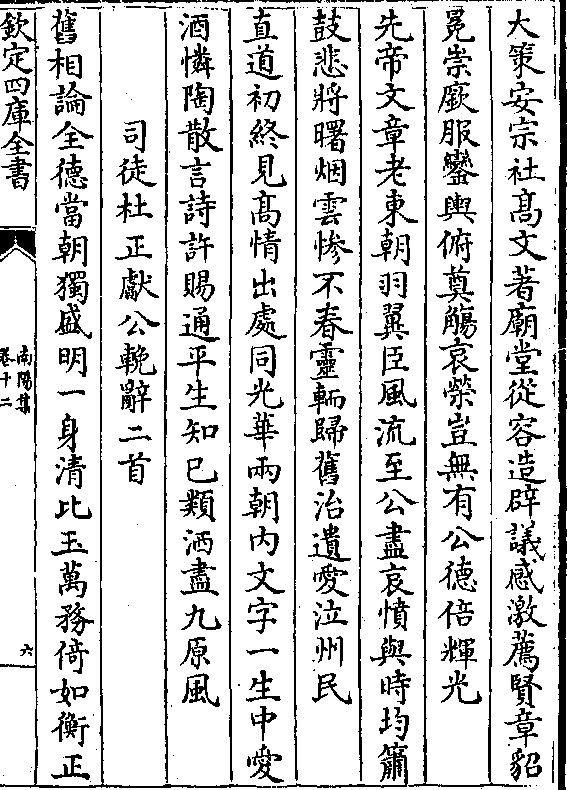 大策安宗社髙文著廟堂從容造辟議感激薦賢章貂
冕崇厥服鑾輿俯奠觴哀榮豈無有公德倍輝光
先帝文章老東朝羽翼臣風流至公盡哀憤與時均簫
鼓悲將曙烟雲惨不春靈輀歸舊治遺愛泣州民
直道初終見髙情出處同光華兩朝内文字一生中愛
酒憐陶散言詩許賜通平生知已類洒盡九原風
司徒杜正獻公輓辭二首
舊相論全德當朝獨盛明一身清比玉萬務倚如衡正
欽定四庫全書
南陽集
卷十二
六